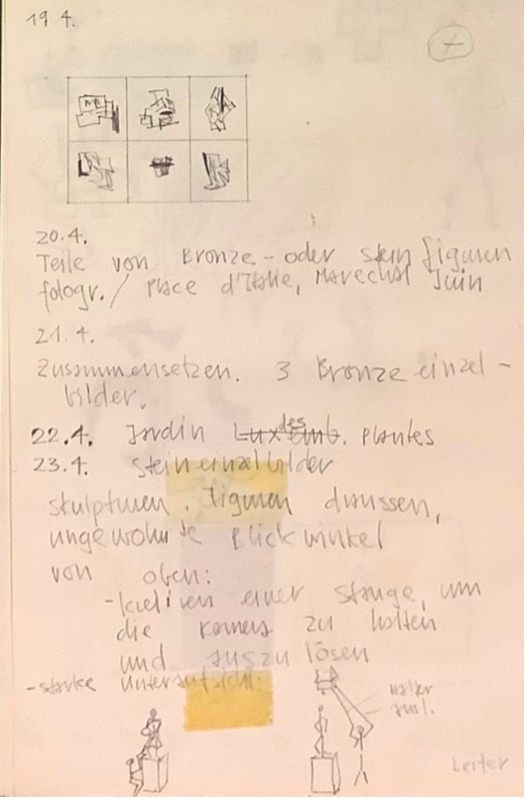 19.4.
20.4.
Teile von Bronze- oder Steinfiguren
fotogr. / Place d'Italie, Marechal Juin
21.4.
Zusammensetzen. 3 Bronzeeinzel-
bilder.
22.4. Jardin des Plantes
23.4. Steineinzelbilder
Skulpturen. Figuren draussen,
ungewohnte Blickwinkel
von oben:
- einer Stange, um
die Kamera zu halten
und auszulösen
- starke Unteraufsicht:
Halter
ausl.
Leiter